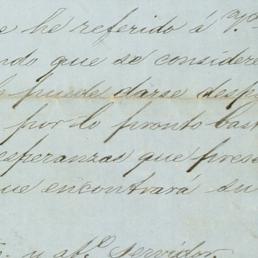 he referido á V.
que se considere
puede darse desp
por lo pronto bast
esperanzas que pres
que encontrará su
y at.º servidor.